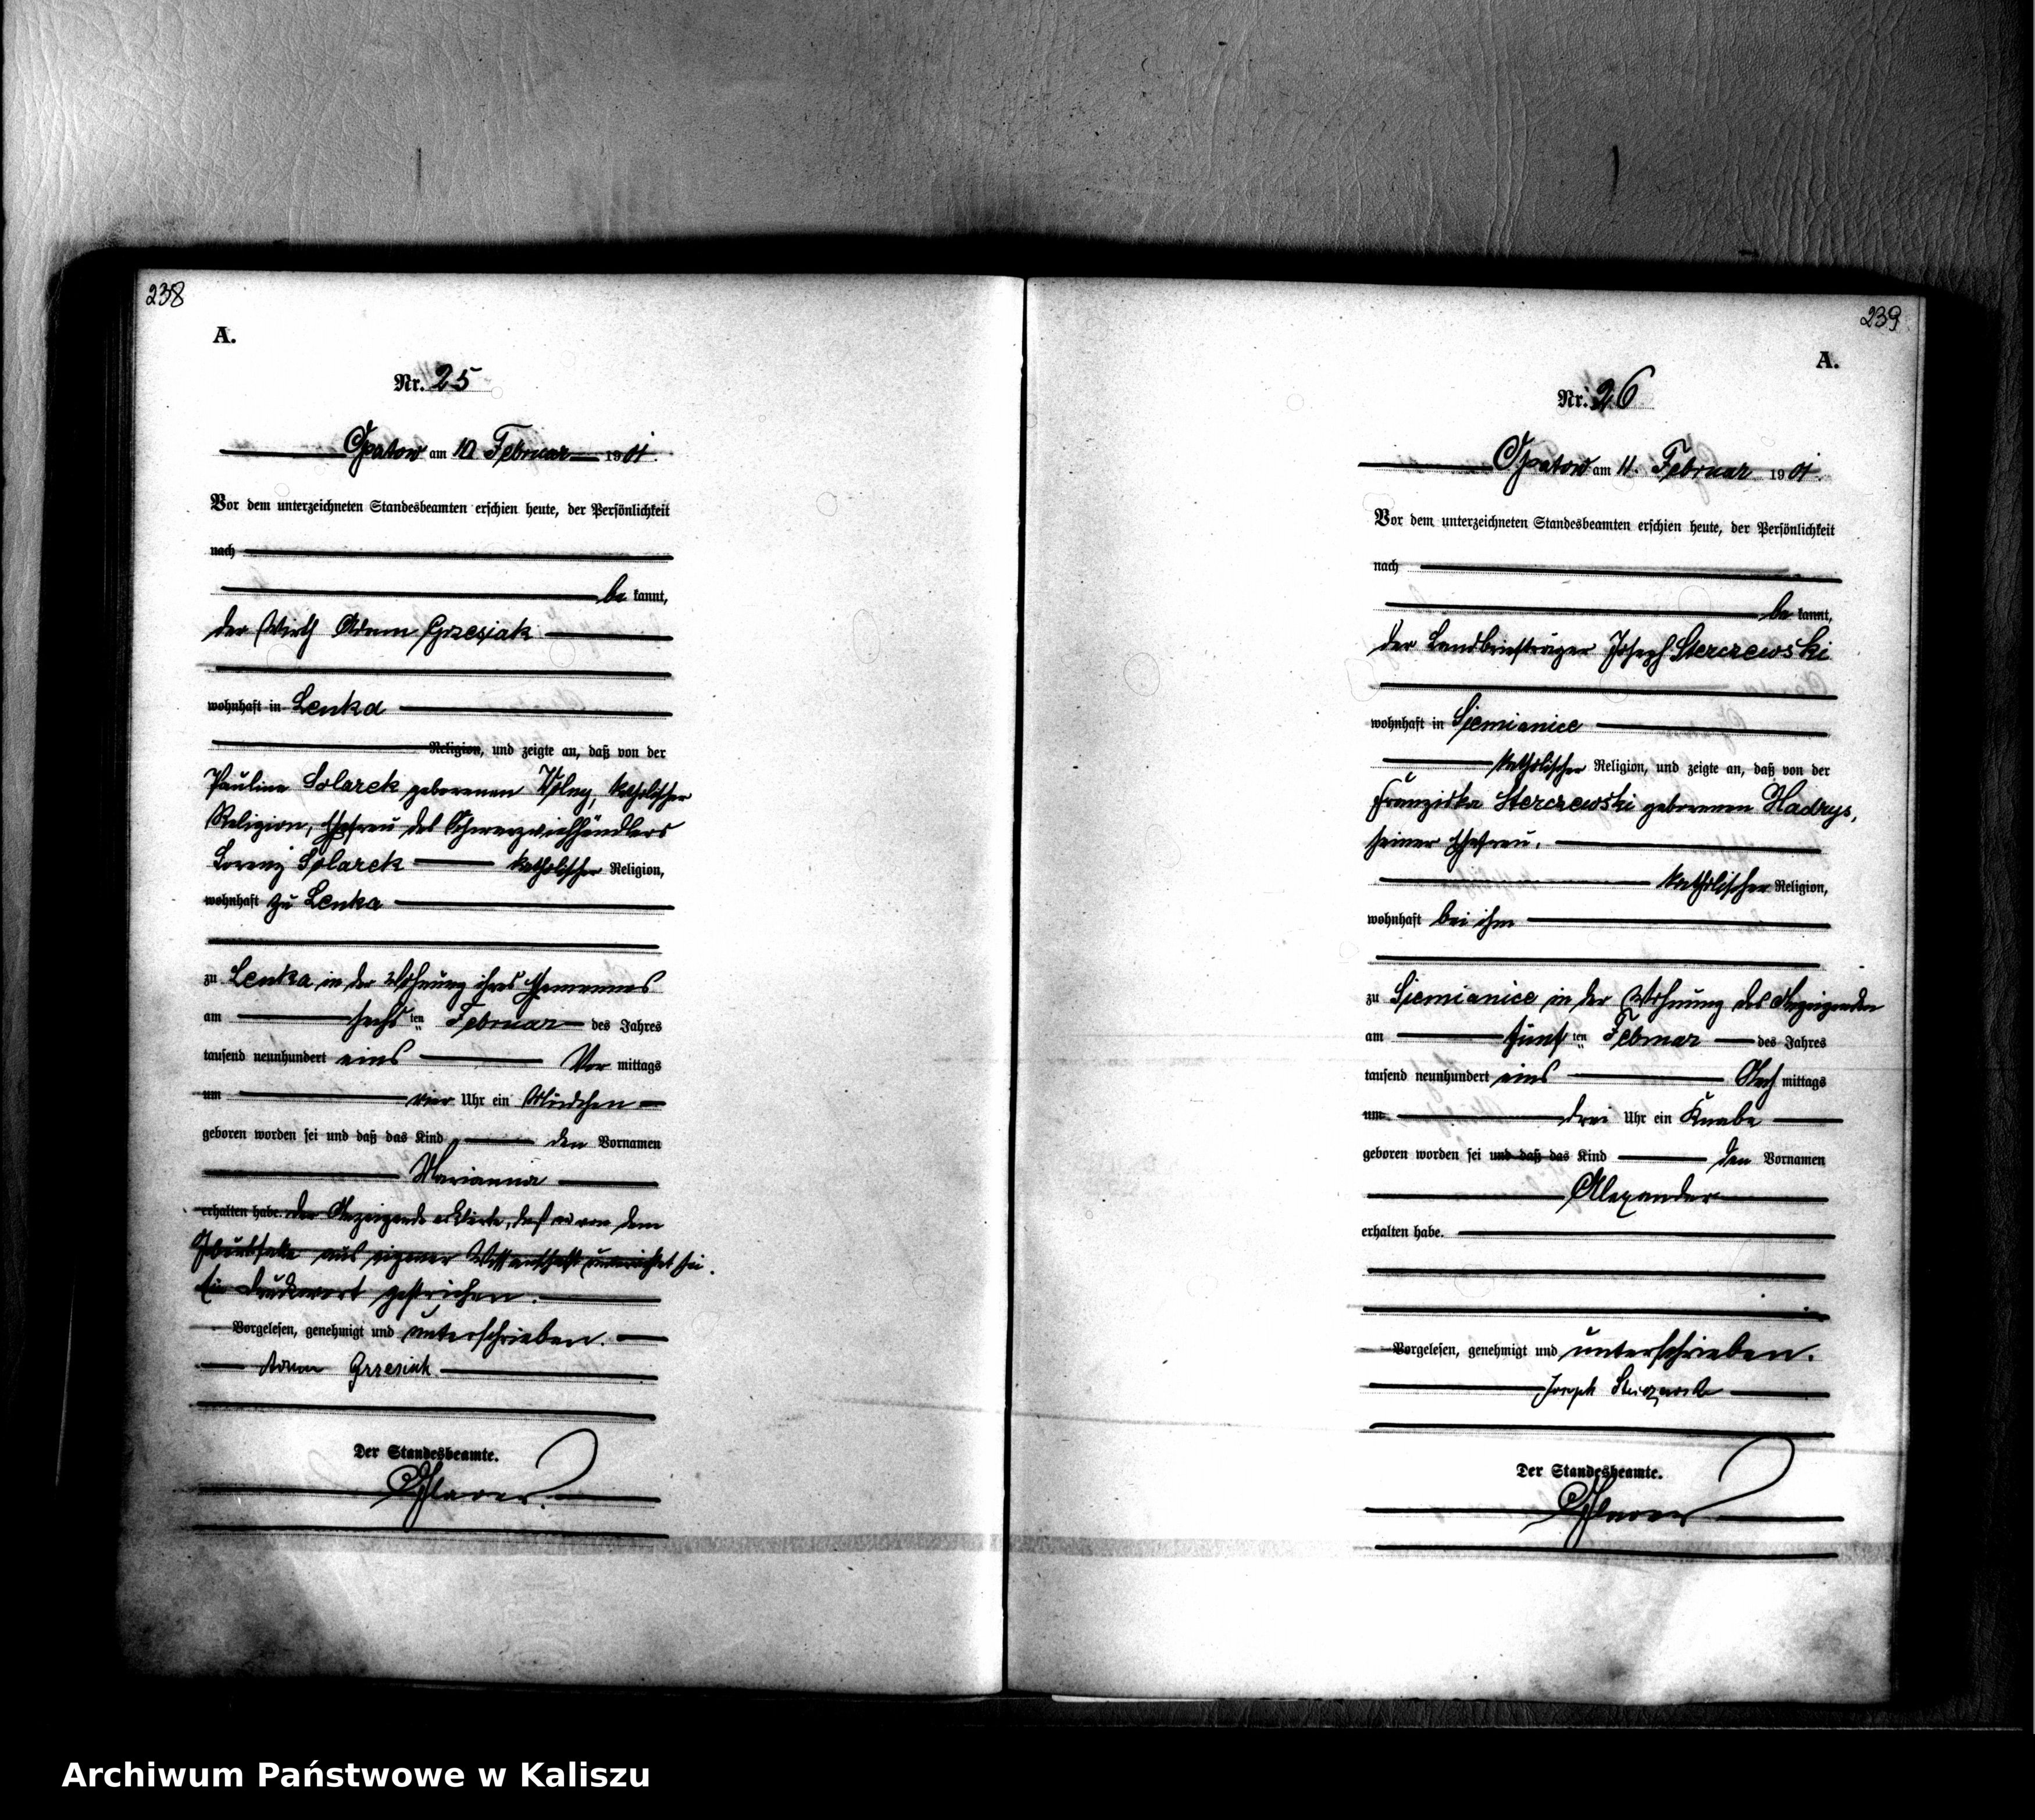 238
A.
Nr. 25
Opatow am 10. Februar 1901.
Vor dem unterzeichneten Standesbeamten erschien heute, der Persönlichkeit
nach
be kannt,
der Wirth Adam Grzesiak
wohnhaft in Lenka
Religion, und zeigte an, daß von der
Pauline Solarek geborenen Wolny, katholischer
Religion, Ehefrau des Schwarzviehhändlers
Lorenz Solarek katholischer Religion,
wohnhaft zu Lenka
zu Lenka in der Wohnung ihres Ehemannes
am sechsten Februar des Jahres
tausend neunhundert eins Vor mittags
um vier Uhr ein Mädchen
geboren worden sei und daß das Kind den Vornamen
Marianna
erhalten habe. Der Anzeigende erklärte, daß er von dem
Geburtsfalle aus eigener Wissenschaft unterrichtet sei.
Ein Druckwort gestrichen.
Vorgelesen, genehmigt und unterschrieben.
Adam Grzesiak
Der Standesbeamte.
239
A.
Nr. 26
Opatow am 11. Februar 1901.
Vor dem unterzeichneten Standesbeamten erschien heute, der Persönlichkeit
nach
be kannt,
der Landbriefträger Joseph Sterczewski
wohnhaft in Siemianice
katholischer Religion, und zeigte an, daß von der
Franziska Sterczewski geborenen Nadrys,
seiner Ehefrau,
katholischer Religion,
wohnhaft bei ihm
zu Siemianice in der Wohnung des Anzeigenden
am fünften Februar des Jahres
tausend neunhundert eins Nach mittags
um drei Uhr ein Knabe
geboren worden sei und daß das Kind den Vornamen
Alexander
erhalten habe.
Vorgelesen, genehmigt und unterschrieben.
Joseph
Der Standesbeamte.
Archiwum Państwowe w Kaliszu